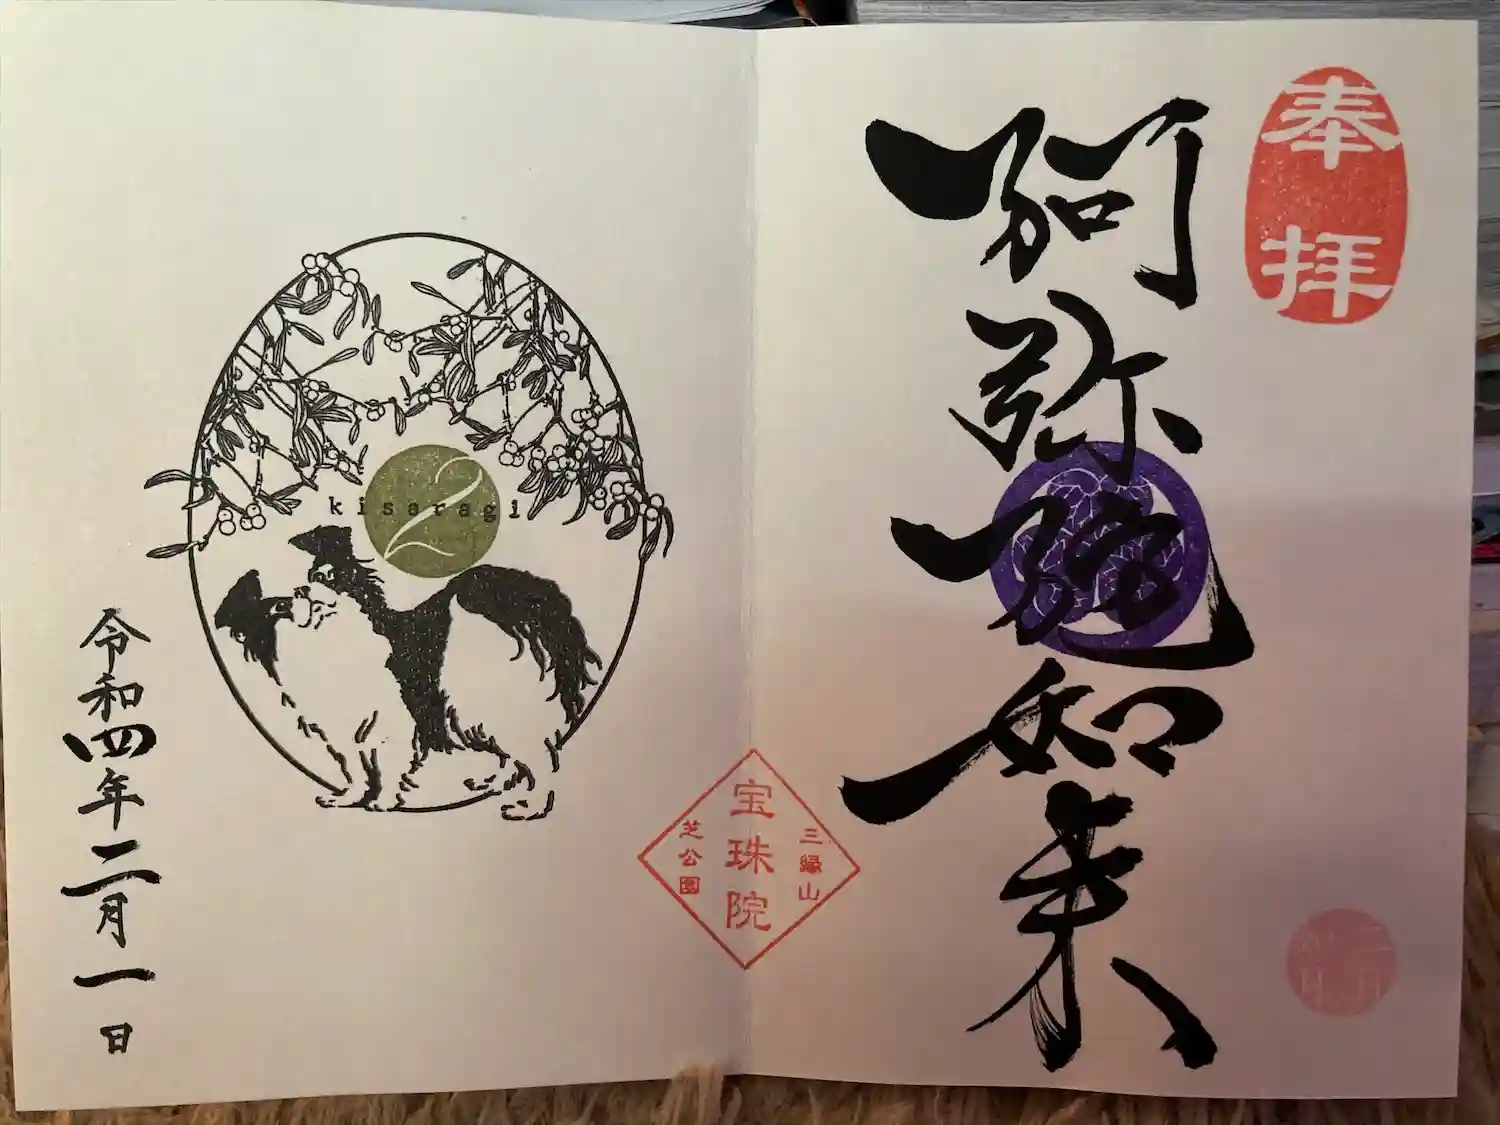 奉拝
阿弥陀如来
二月
三縁山
宝珠院
芝公園
2
kisaragi
令和四年二月一日